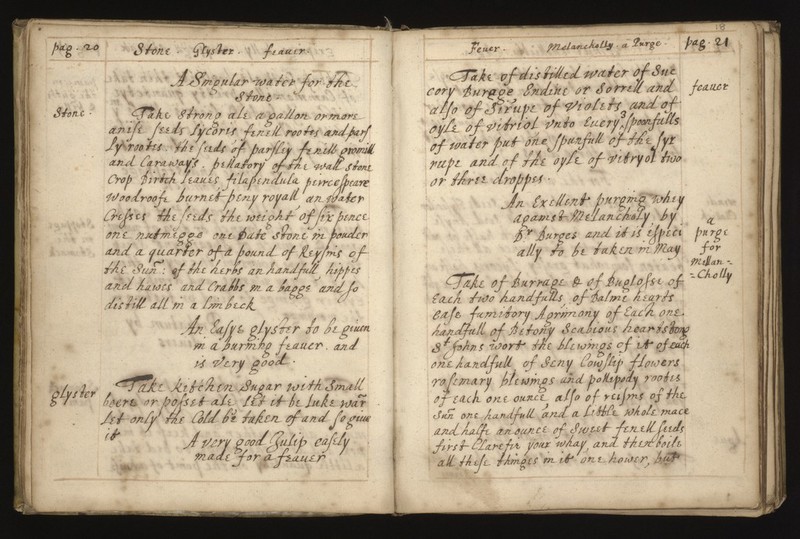 pag. 20 Stone Glyster. feauer
A Singular water for the
Stone.
Stone. Take Strong ale a gallon or more
anise seeds Lycoris fenell rootes and pars
ly rootes. the seeds of parsley fenell gromill
and Caraways. pellatory of the wall stone
Crop Birtch Leaues filapendula peircespeare
Woodroofe burnet peny royall an water
Cresses the seeds the weight of six pence
one nutmegge one Date Stone in pouder
and a quarter of a pound of Reysins of
the Sun: of the herbs an handfull hippes
and hawes and Crabbs in a bagge and so
distill all in a Limbeck
An Easye glyster to be giuen
in a burning feauer. and
is very good.
glyster Take kitchen Sugar with Small
beere or posset ale Let it be Luke war
Let only the Cold be taken of and so giue
it
A very good Julip easely
made for a feauer
18
Feuer. Melancholly. a Purge. pag. 21
Take of distilled water of Suc
cory Burage Endiue or Sorrell and feauer
also of Sirupe of violets and of
oyle of vitriol vnto Euery 3 spoonfulls
of water put one spunfull of the syr
rupe and of the oyle of vitryol two
or three droppes.
An Exellent purging whey
against Melancholy by
Dr Burges and it is especi
ally to be taken in May
a
purge
for
Mellan-
-Cholly
Take of Burrage & of Buglosse of
Each two handfulls, of Balme hearts
ease fumitory Agrimony of Each one
handfull of Bitony Scabious heartstong
St Johns wort the blewings of it of each
one handfull of Seny Cowslip flowers
rosemary blewings and polipody rootes
of each one ounce also of reisins of the
Sun one handfull and a Little whole mace
and halfe an ounce of Sweet fenell seeds
first Clarefie your whay, and then boile
all these thinges in it one hower, but